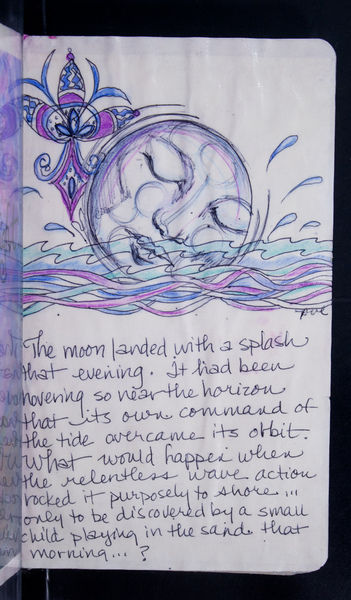 pve
The moon landed with a splash
that evening. It had been
hovering so near the horizon
that its own command of
the tide overcame its orbit.
What would happen when
the relentless wave action
rocked it purposely to shore...
only to be discovered by a small
child playing in the sand that
morning...?